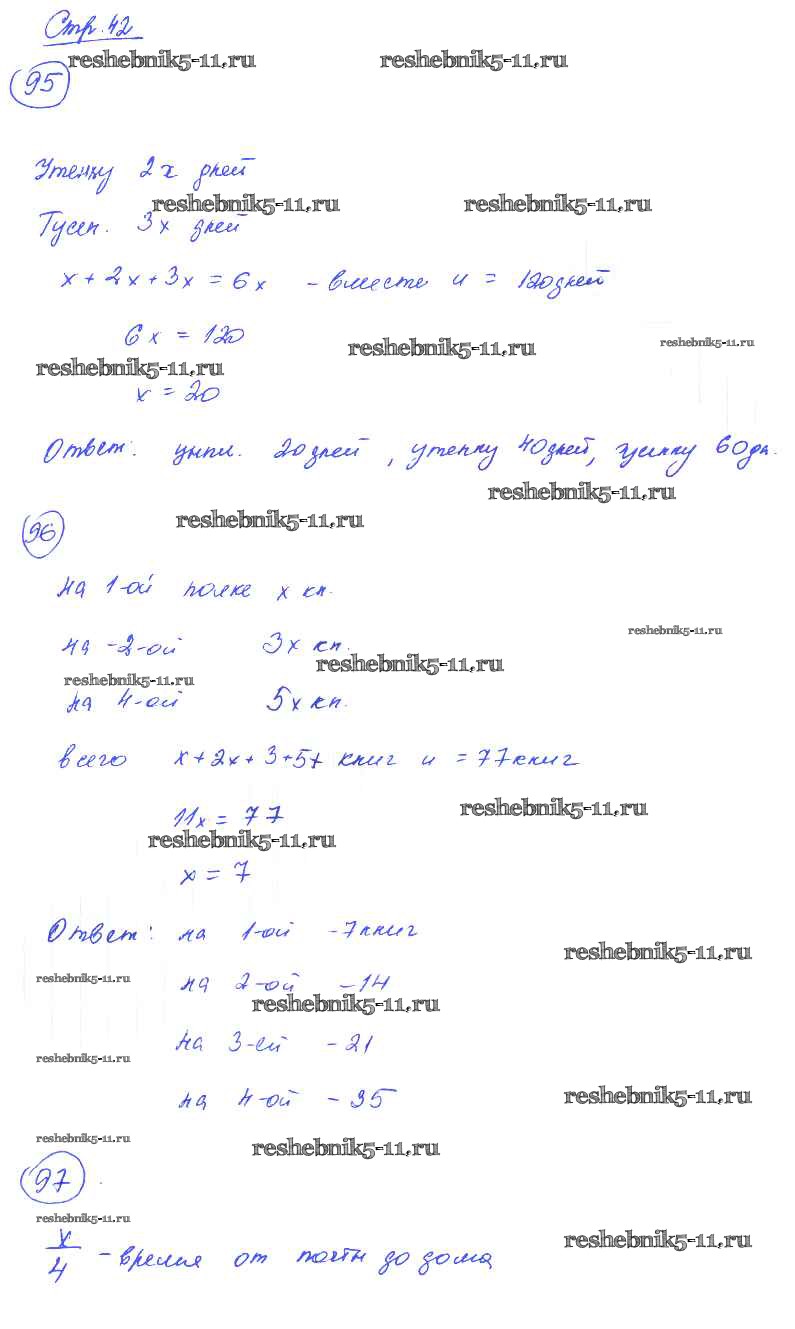 Стр. 42
reshebnik5-11.ru reshebnik5-11.ru
95
Утенку 2x дней
reshebnik5-11.ru reshebnik5-11.ru
Гусен. 3x дней
x + 2x + 3x = 6x - вместе и = 120 дней
6x = 120
reshebnik5-11.ru reshebnik5-11.ru
reshebnik5-11.ru
x = 20
Ответ: цыпл. 20 дней, утенку 40 дней, гусенку 60 дн.
reshebnik5-11.ru
reshebnik5-11.ru
96
на 1-ой полке x кн.
reshebnik5-11.ru
на -2-ой 3x кн.
reshebnik5-11.ru
reshebnik5-11.ru
на 4-ой 5x кн.
всего x + 2x + 3 + 5+ книг и = 77 книг
reshebnik5-11.ru
11x = 77
reshebnik5-11.ru
x = 7
Ответ: на 1-ой - 7 книг
reshebnik5-11.ru
reshebnik5-11.ru
на 2-ой - 14
reshebnik5-11.ru
на 3-ей - 21
reshebnik5-11.ru
на 4-ой - 35
reshebnik5-11.ru
reshebnik5-11.ru
reshebnik5-11.ru
97
reshebnik5-11.ru
reshebnik5-11.ru
x/4 - время от почты до дома